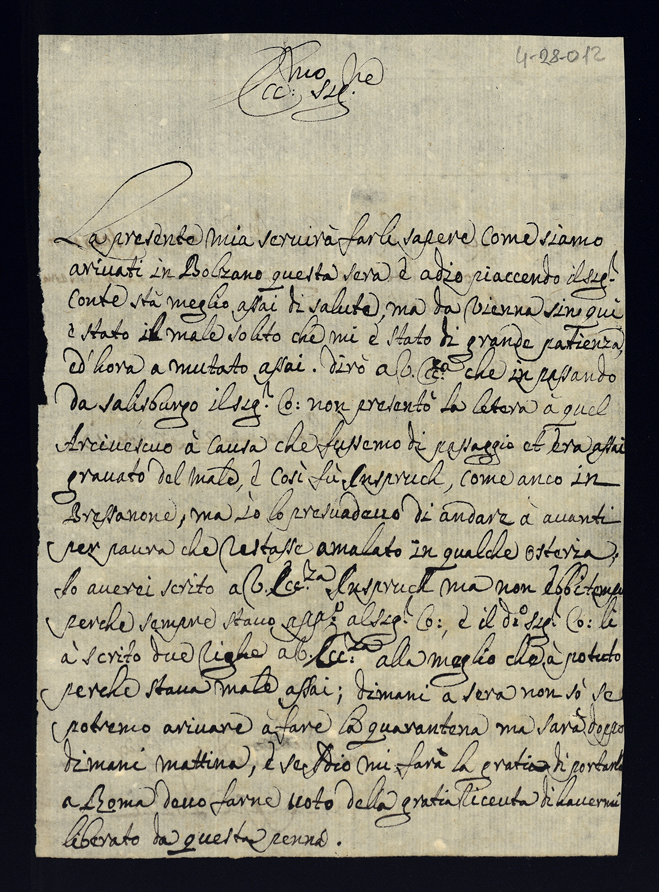 4-28-012
Ecc:mo Sig:re
La presente mia servirà farle sapere come siamo
arivati in Bolzano questa sera è adio piaccendo il sig:r
Conte stà meglio assai di salute, ma da Vienna sin qui
è stato il male solito che mi è stato di grande patienza,
ed' hora a mutato assai. dirò a V. Ecc:za che in passando
da salisburgo il sig:r Co: non presentò la letera à quel
Arcivescuo à causa che fussemo di passaggio et era assai
gravato del male, è così fù Inspruch, come anco in
Bressanone, ma io lo presuadevo di andare à avanti
per paura che restasse amalato in qualche osteria;
Io averei scrito a V. Ecc:za Inspruch ma non ebbi tempo
perche sempre stavo al sig:r Co:, è il d:o sig:r Co: li
à scrito due righe a V. Ecc:za alla meglio che à potuto
perche stava male assai; dimani a sera non sò se
potremo arivare à fare la quarantena ma sarà doppo
dimani mattina, è se Idio mi farà la gratia di portarlo
a Roma devo farne voto della gratia riceuta di havermi
liberato da questa penna.